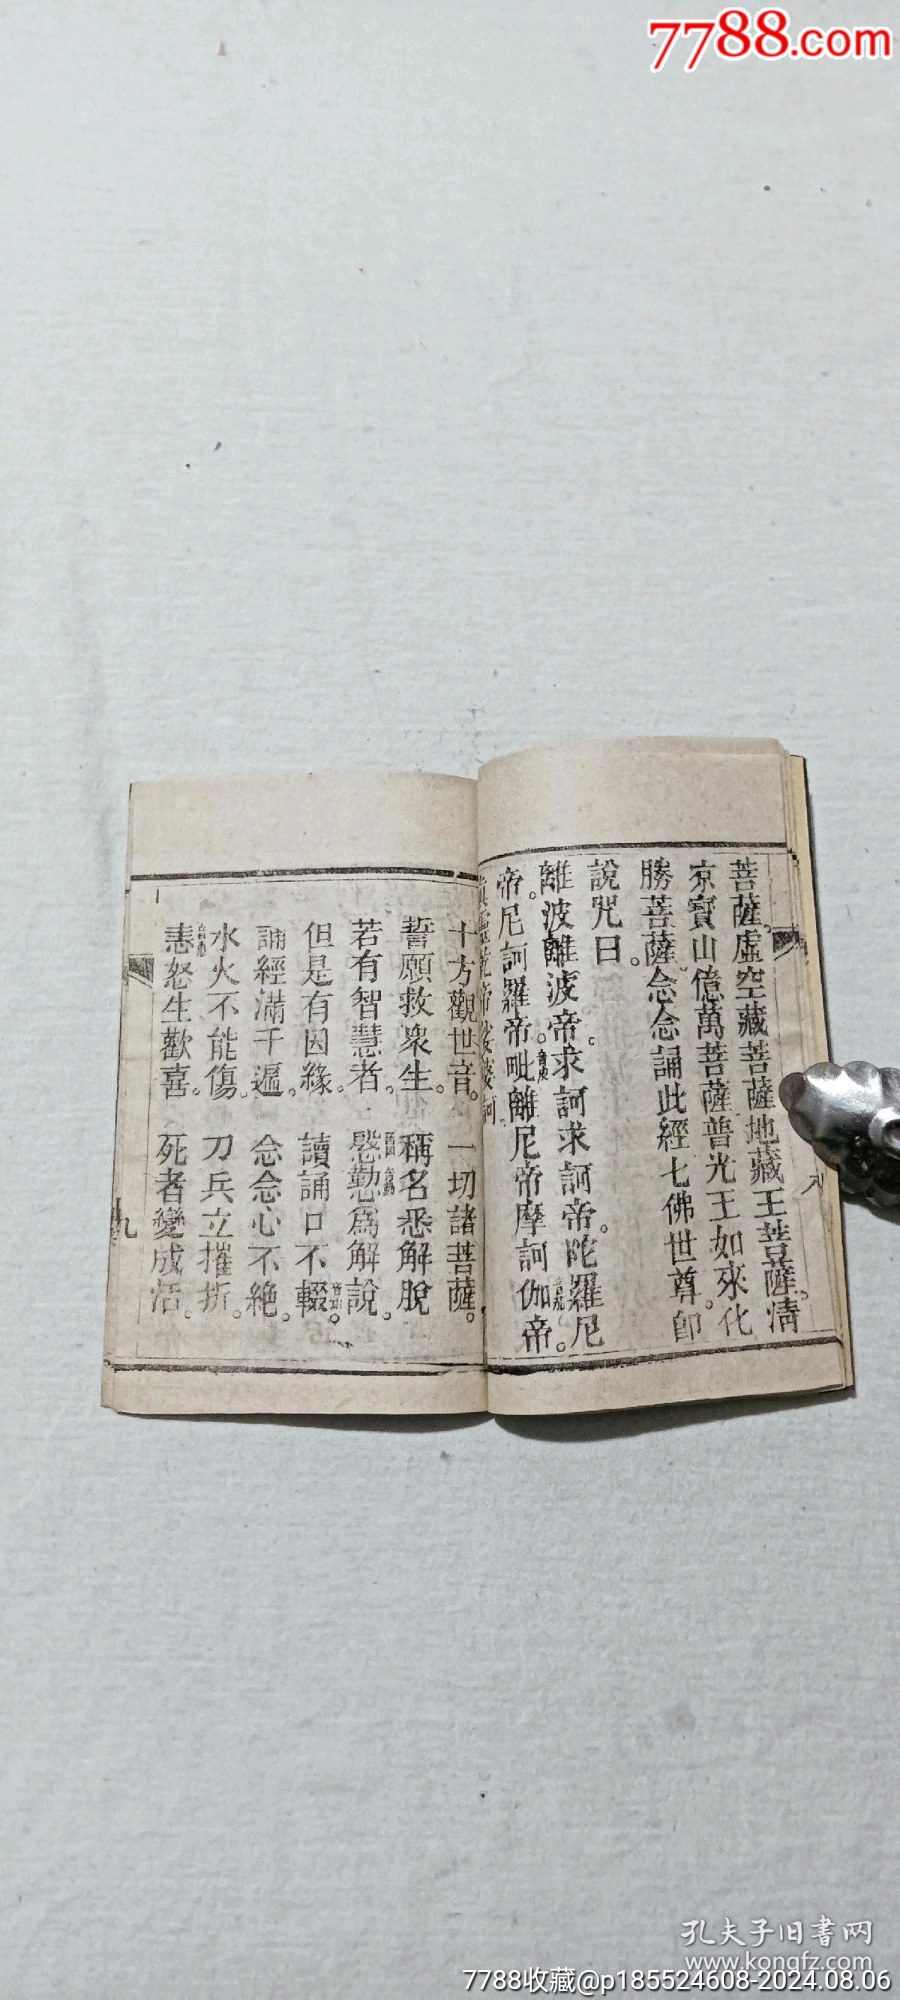 7788.com
菩薩。虛空藏菩薩地藏王菩薩。清
涼寶山億萬菩薩普光王如來化
勝菩薩。念念誦此經七佛世尊。卽
說咒曰
離波離波帝。求訶求訶帝。陀羅尼
帝。尼訶羅帝。毗離尼帝摩訶伽帝。
真靈乾帝娑婆訶
十方觀世音。一切諸菩薩。
誓願救衆生。稱名悉解脫
若有智慧者。慇懃爲解說。
但是有因緣。讀誦口不輟。
誦經滿千遍。念念心不絕。
水火不能傷。刀兵立摧折。
恚怒生歡喜。死者變成活。
九
孔夫子旧书网
www.kongfz.com
7788收藏@p185524608-2024.08.06